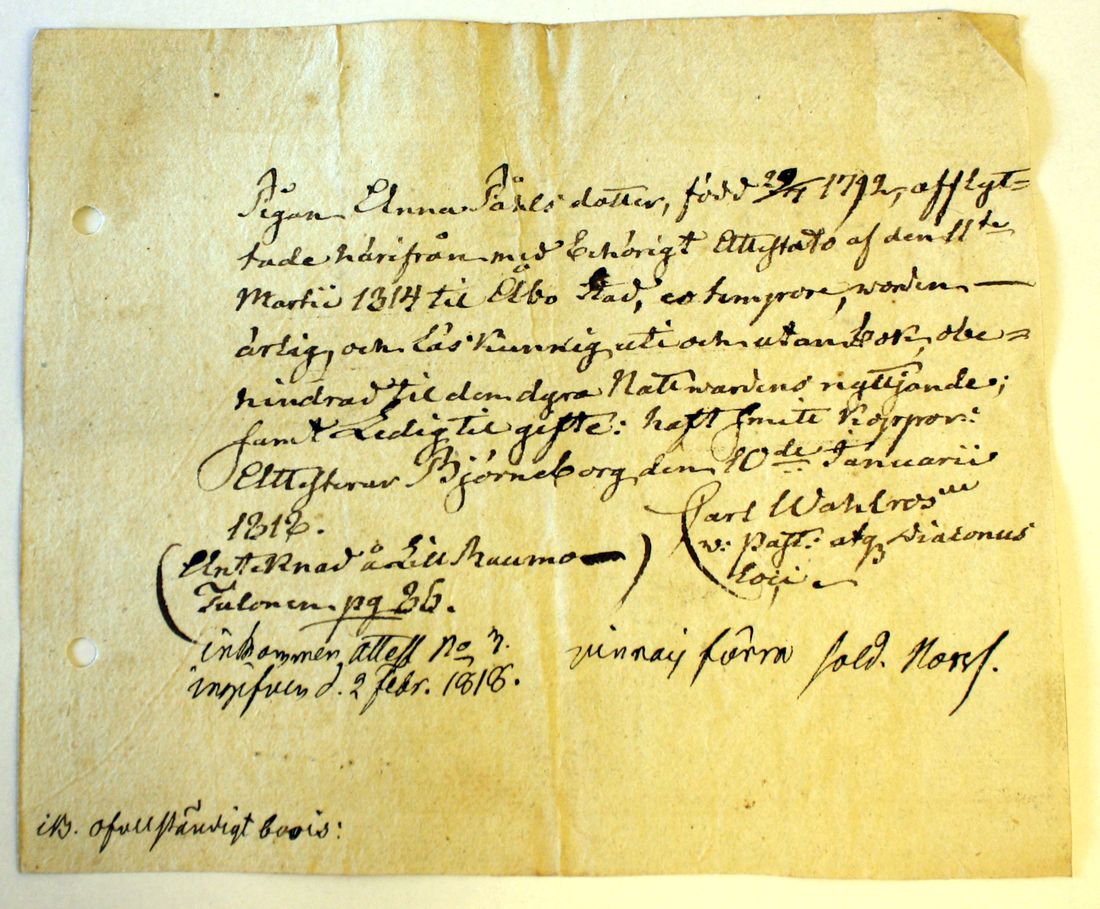 Pigan Anna Påhls dotter, född 29/4 1792, afflyt=
tade härifrån med behörigt Attestato af den 11te
Martii 1814 til Åbo Stad, eo tempore, worden
ärlig, och Läskunnig uti och utan bok, obe=
hindrad til dem dyra Nattwardens nyttjande;
samt Ledig til gifte: haft smitt Koppor:
Attesterar Björneborg den 10de Januarii
1818.
Carl Wahlroos
v: Past: atq Diaconus
Loci
(Antecknad å Lill Raumo
Tulonen pg 36.)
inkommen attest No 7.
ingifven d. 2 Febr. 1818.
förra sold.
ofullständigt bevis: